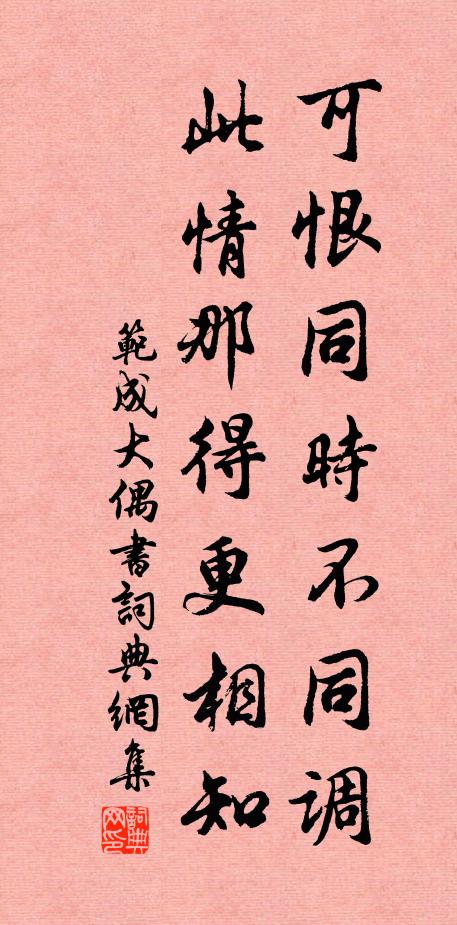 可恨同時不同調
此情那得更相知
範成大偶書詞典網集
詞典网印